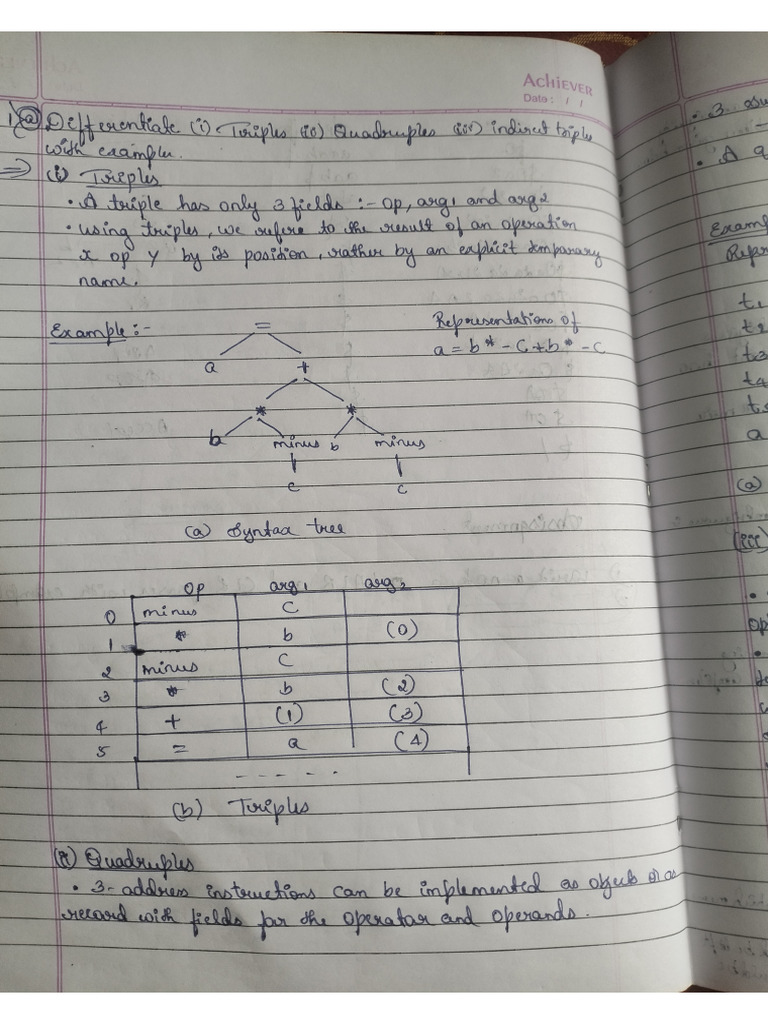 ACHIEVER
Date: / /
1) (a) Differentiate (i) Triples (ii) Quadruples (iii) indirect triples
with example.
=> (i) Triples
• A triple has only 3 fields :- op, arg1 and arg2
• using triples, we refere to the result of an operation
x op y by its position, rather by an explicit temparary
name.
Example :-
Representations of
a = b * - c + b * - c
=
a +
* *
b minus b minus
c c
(a) Syntax tree
op arg1 arg2
0 minus C
1 * b (0)
2 minus C
3 * b (2)
4 + (1) (3)
5 = a (4)
- - - - - -
(b) Triples
(ii) Quadruples
• 3-address instructions can be implemented as objects or as
record with fields for the operator and operands.
• 3
• A q
Examp
Repr
t1
t2
t3
t4
t5
a
(a)
(iii)
•
op
•